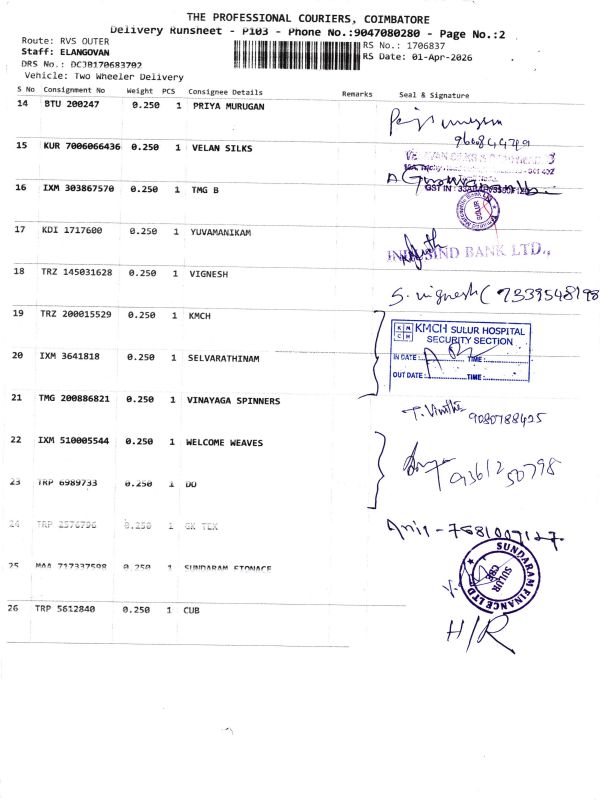 THE PROFESSIONAL COURIERS, COIMBATORE
Delivery Runsheet - P103 - Phone No.:9047080280 - Page No.:2
Route: RVS OUTER RS No.: 1706837
Staff: ELANGOVAN RS Date: 01-Apr-2026
DRS No.: DCJB170683702
Vehicle: Two Wheeler Delivery
S No Consignment No Weight PCS Consignee Details Remarks Seal & Signature
14 BTU 200247 0.250 1 PRIYA MURUGAN
15 KUR 7006066436 0.250 1 VELAN SILKS
16 IXM 303867570 0.250 1 TMG B
GST IN :
SULUR
17 KDI 1717600 0.250 1 YUVAMANIKAM
INDUSIND BANK LTD.,
18 TRZ 145031628 0.250 1 VIGNESH
S. vignesh ( 7339548198
19 TRZ 200015529 0.250 1 KMCH
KMCH SULUR HOSPITAL
SECURITY SECTION
20 IXM 3641818 0.250 1 SELVARATHINAM
IN DATE : TIME :
OUT DATE : TIME :
21 TMG 200886821 0.250 1 VINAYAGA SPINNERS
9080788425
22 IXM 510005544 0.250 1 WELCOME WEAVES
9361250798
23 TRP 6989733 0.250 1 DO
24 TRP 2576796 0.250 1 GK TEX
7581007127
25 MAA 717337598 0.250 1 SUNDARAM
SUNDARAM FINANCE LTD
SULUR
CBE
26 TRP 5612840 0.250 1 CUB
H/R